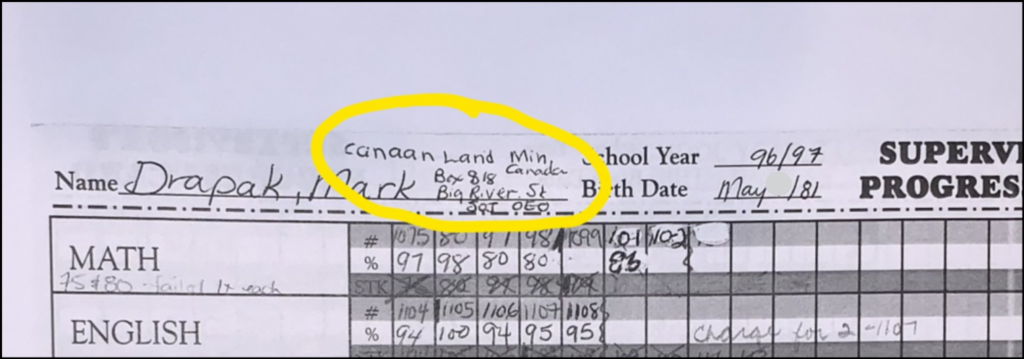 Canaan Land Min
School Year 96/97 SUPERVI
Box 818 Canada
Name Drapak, Mark Big River St Birth Date May /81 PROGRES
S0J 0E0
MATH # 1075 80 97 98 1099 101 102
% 97 98 80 80 83
75 & 80 - failed 1x each STK
ENGLISH # 1104 1105 1106 1107 1108
% 94 100 94 95 95 Charge for 2 - 1107